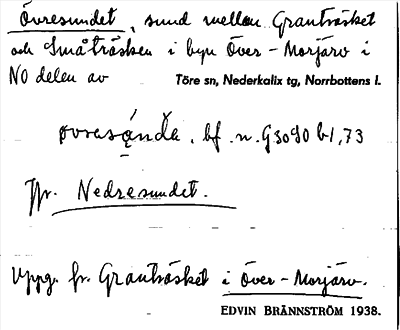 Övresundet, sund mellan Granträsket
och Småträsken i byn Över-Morjärv i
NO delen av Töre sn, Nederkalix tg, Norrbottens l.
bf. n. G3090 b1, 73
Jfr. Nedresundet.
Uppg. fr. Granträsket i Över-Morjärv.
EDVIN BRÄNNSTRÖM 1938.